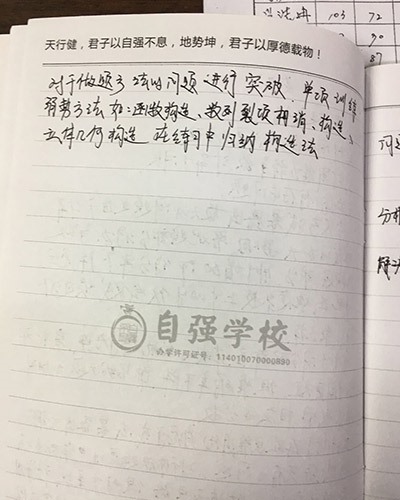 天行健，君子以自强不息，地势坤，君子以厚德载物！
对于做题方法的问题进行突破，单项训练
解势方法如：函数构造、数列裂项相消、构造、
立体几何构造 在练习中归纳构造法
自强学校
办学许可证号：114010070000890
103 72
90
87
问
分